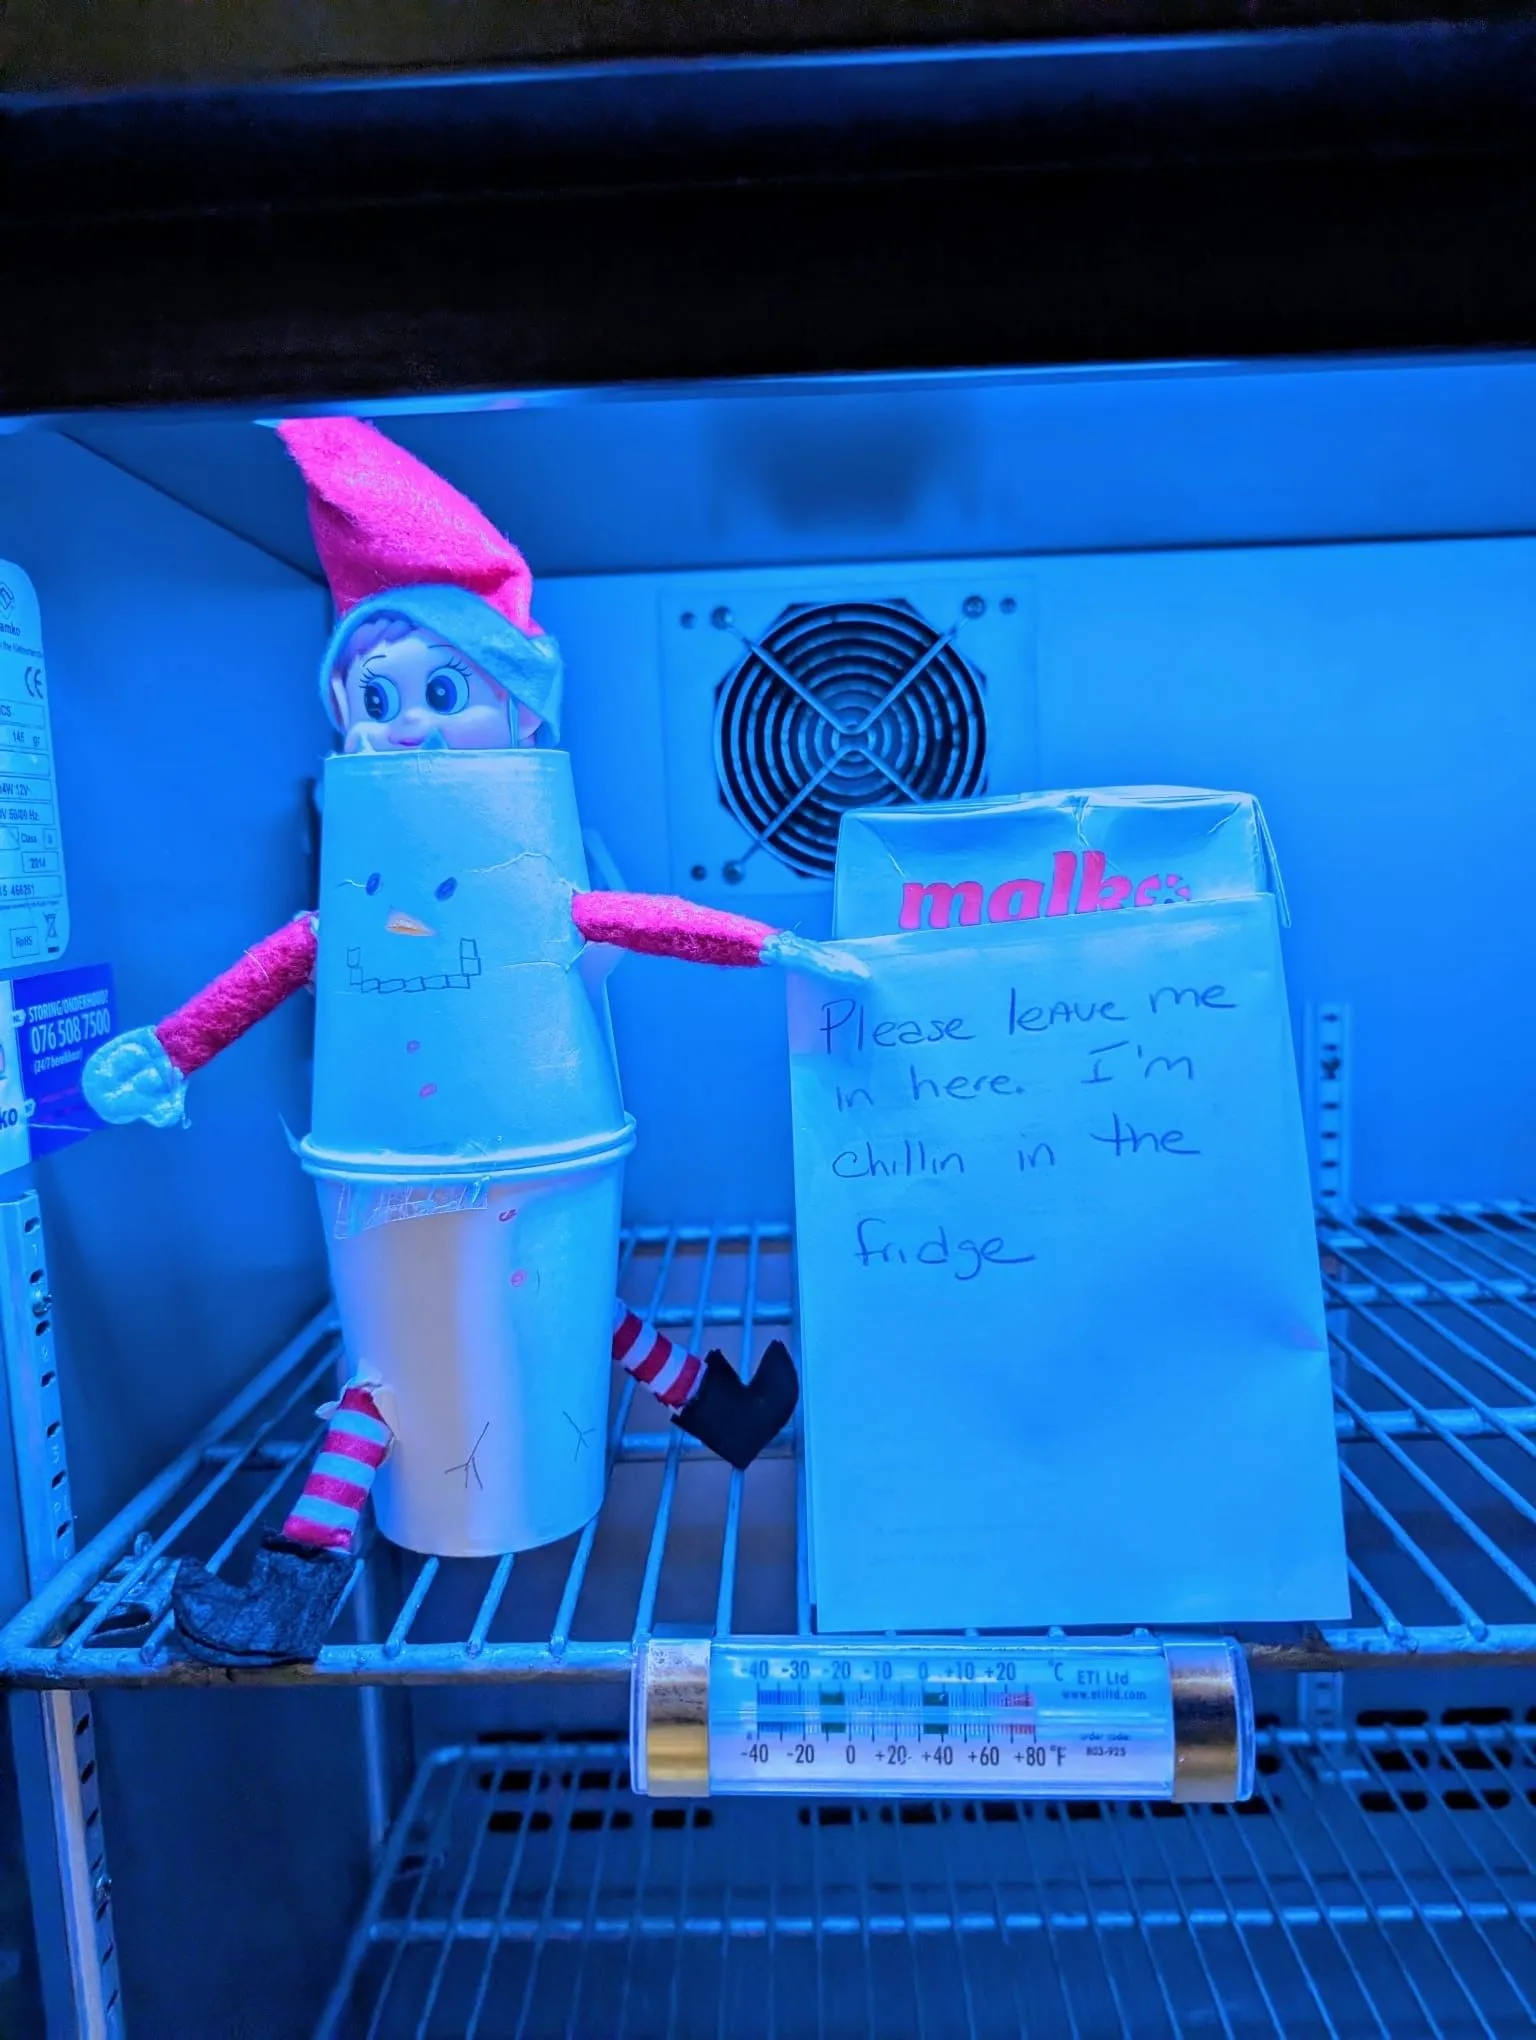 amko
CE
CS
145 gr
4W 12V
V 50/60 Hz
Class
2014
466261
RoHS
NL STORING/ONDERHOUD?
076 508 7500
(24/7 bereikbaar)
ko
malk
Please leave me
in here. I'm
chillin in the
fridge
-40 -30 -20 -10 0 +10 +20 °C ETI Ltd
www.etiltd.com
-40 -20 0 +20 +40 +60 +80 °F
order code:
803-925